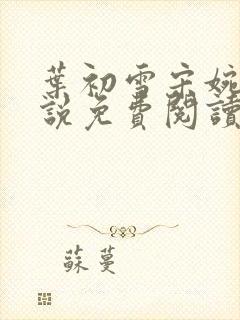 葉初雪宋婉
說免費閱讀
蘇蔓